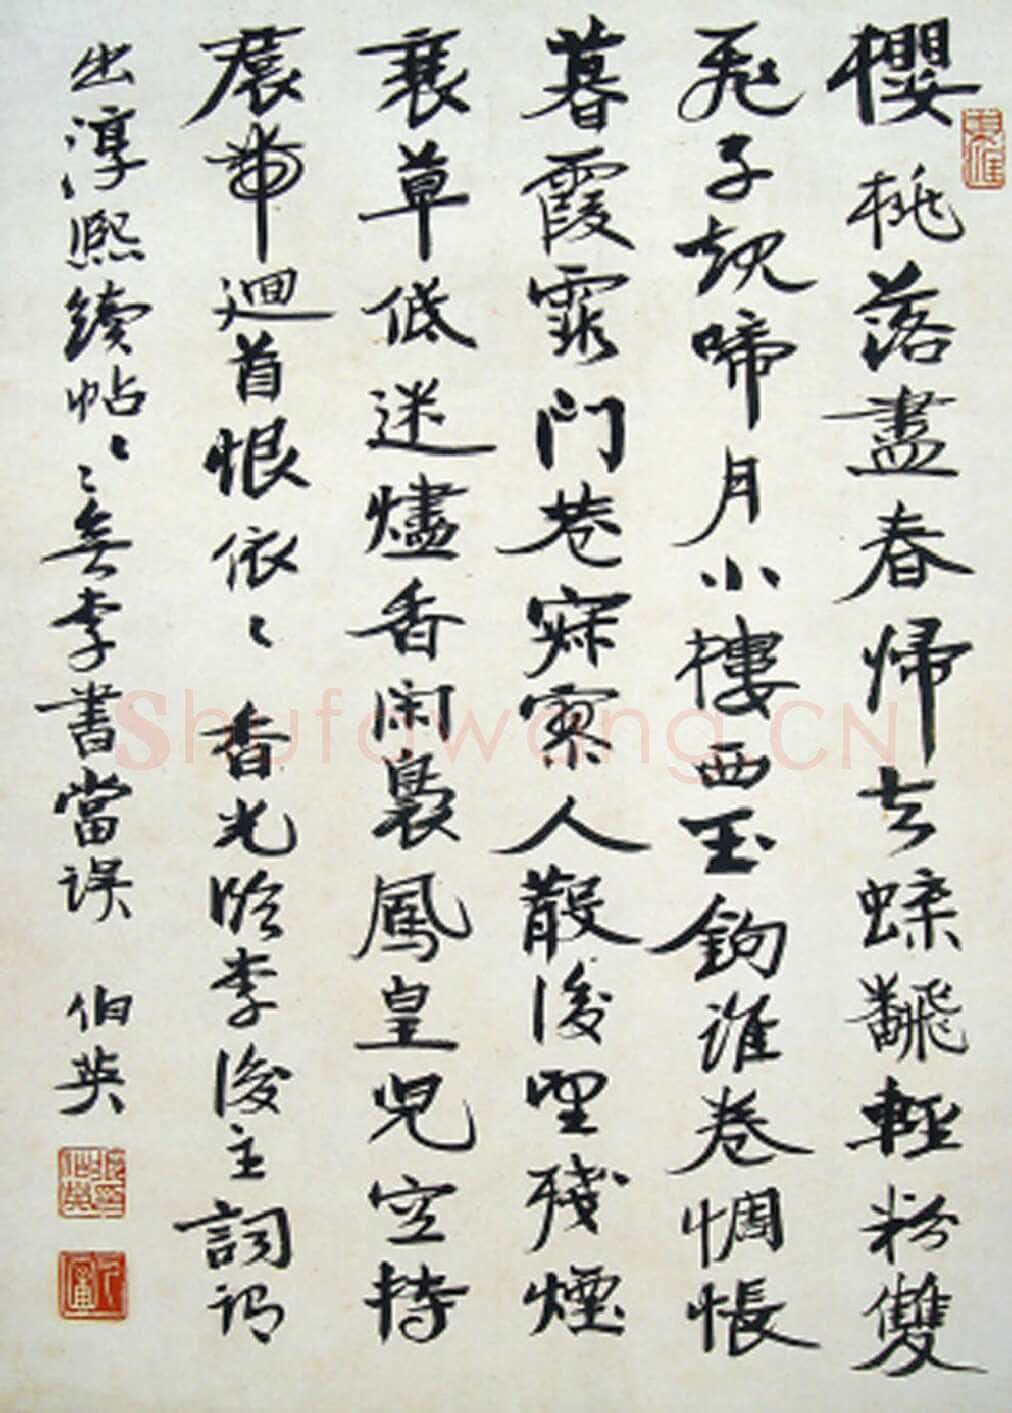 櫻桃落盡春歸去蜨飜輕粉雙
飛子規啼月小樓西玉鉤誰卷惆悵
暮霞霏門巷寂寥人散後望殘煙
衰草低迷爐香閑裊鳳皇兒空持
裠帶迴首恨依〻香光臨李後主詞謂
出淳熙續帖〻〻無李書當誤
伯英
Shufawang.CN